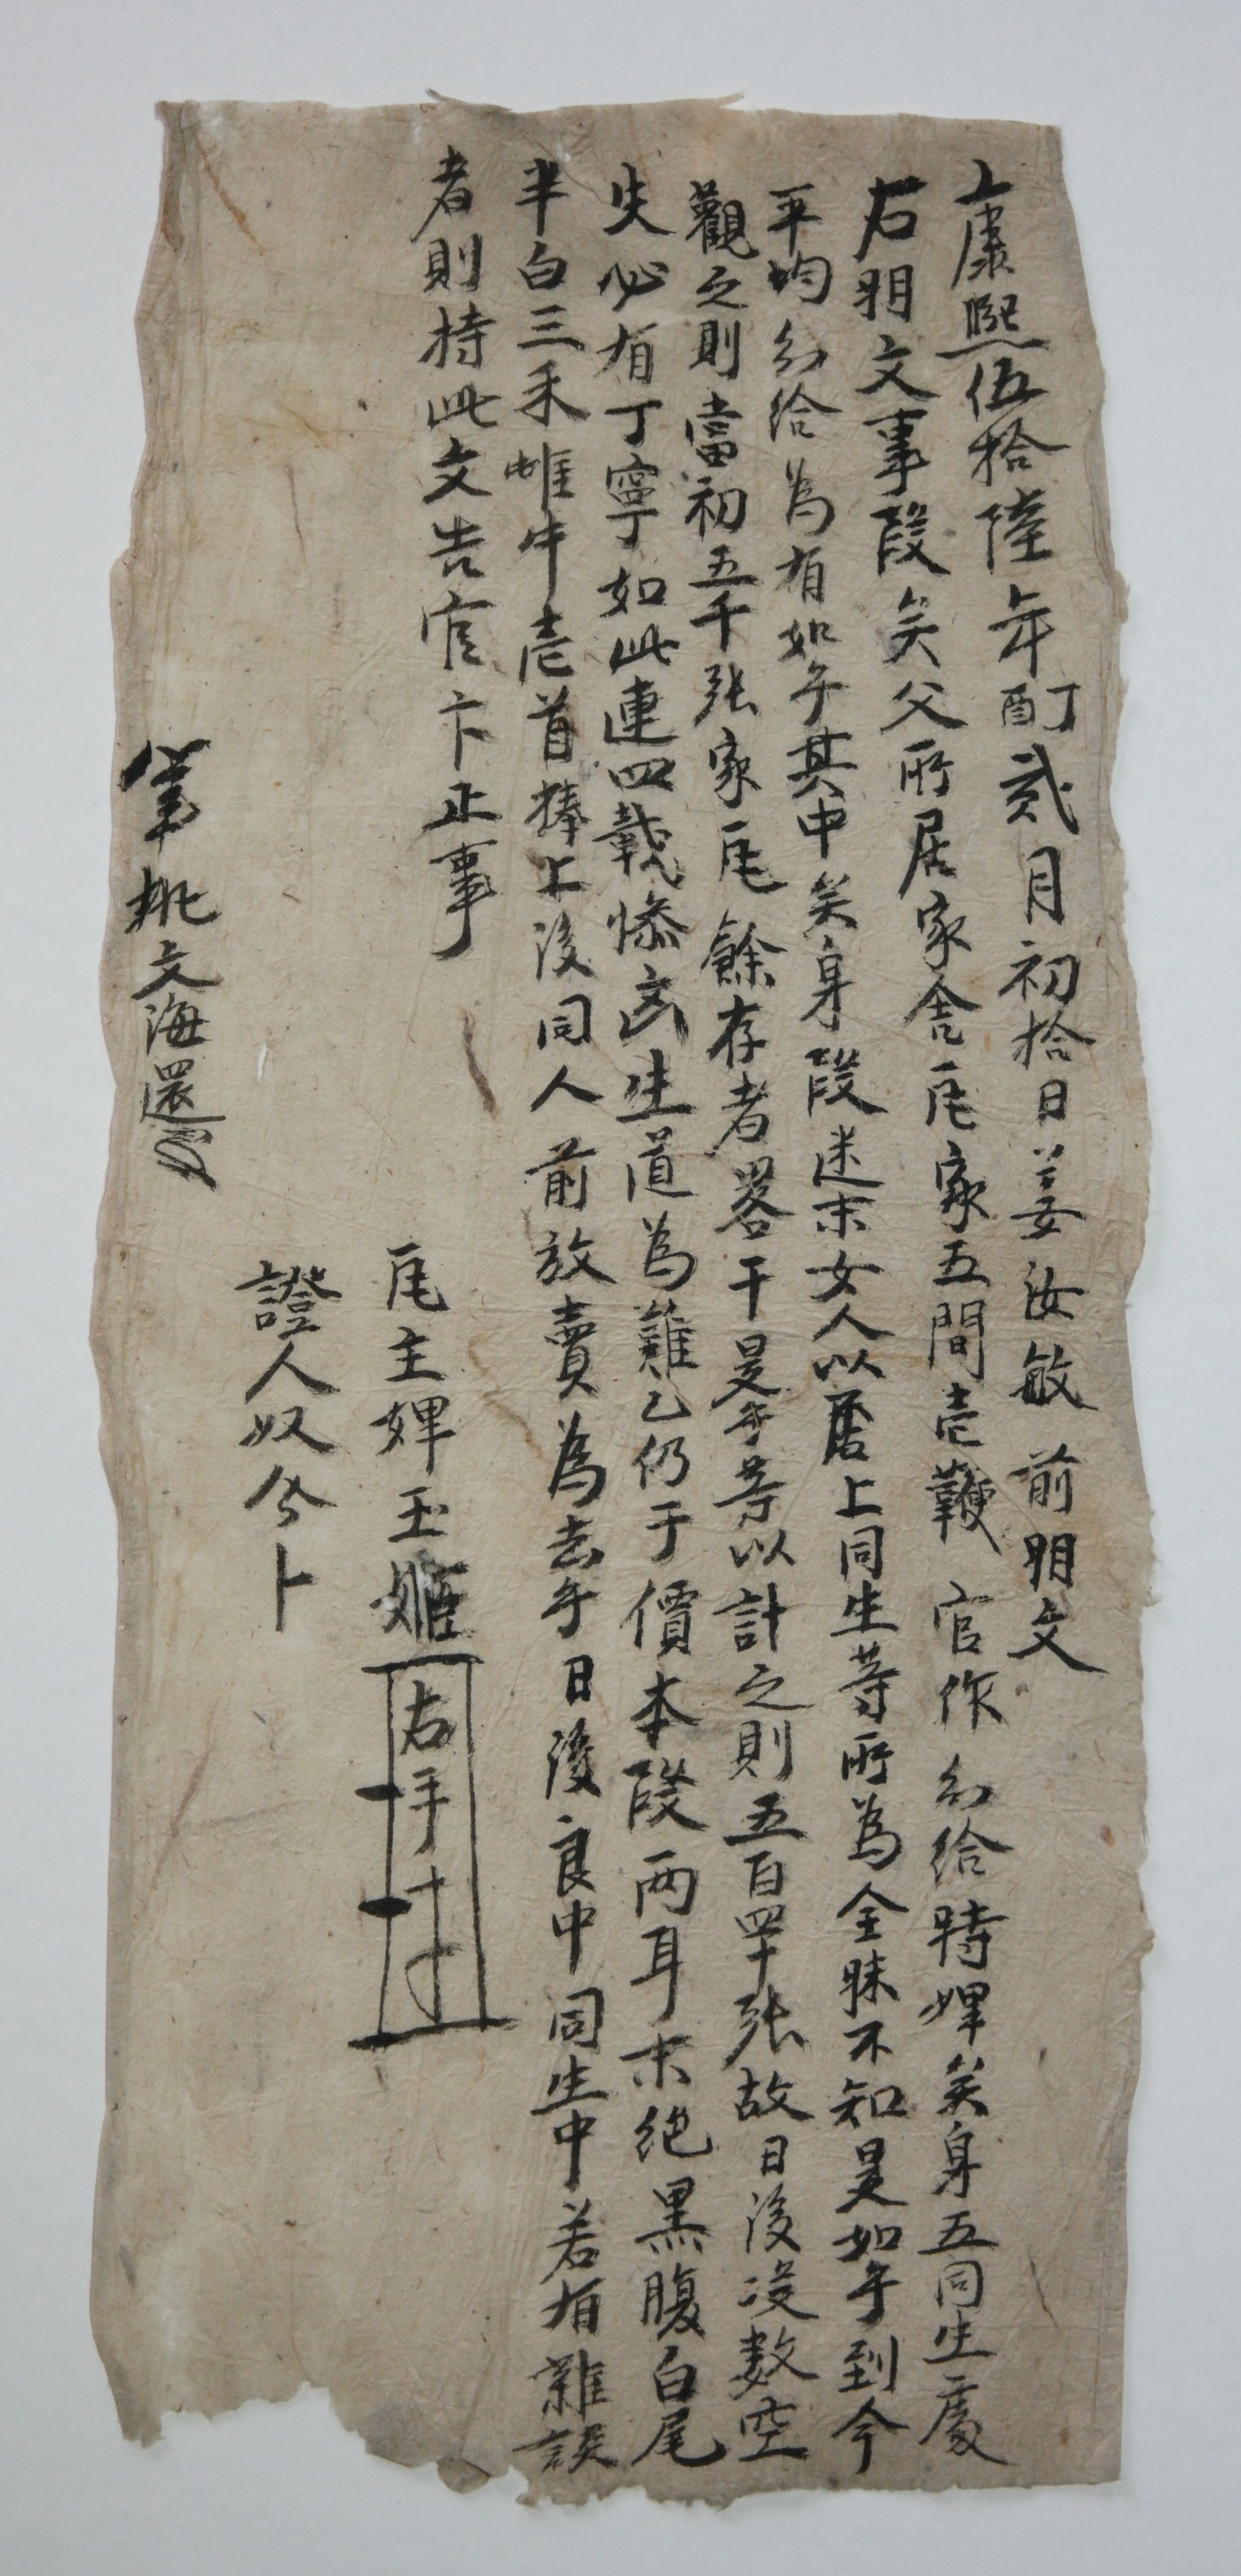 上康熙伍拾陸年丁酉貳月初拾日姜汝敏 前明文
右明文事段矣父所居家舍瓦家五間壱鞭 官作分給時婢矣身五同生處
平均分給爲有如乎其中矣身段迷末女人以居上同生等所爲全昧不知是如乎到今
觀之則當初五千張家瓦餘存者畧干是乎等以計之則五百四十張故日後沒數空
失必有丁寧如此連四載慘凶生道爲難乙仍于價本段兩耳末絶黑腹白尾
半白三禾雌牛壱首捧上後同人 前放賣爲去乎日後良中同生中若有雜談
者則持此文告官卞正事
瓦主婢玉姬 右手寸
證人奴今卜
筆執文海還